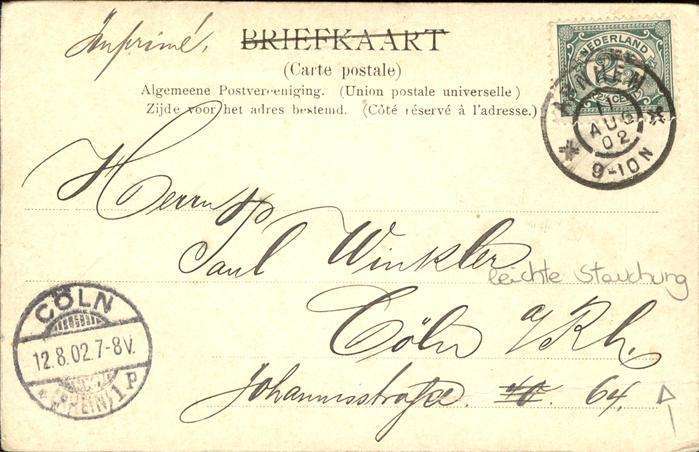 Imprimé.
BRIEFKAART
(Carte postale)
Algemeene Postvereeniging. (Union postale universelle)
Zijde voor het adres bestemd. (Côté réservé à l'adresse.)
NEDERLAND
AUG
02
9-10N
Herrn
Paul Winkler
leichte Stauchung
Cöln a/Rh.
Johannisstraße. 64.
CÖLN
12.8.02.7-8V.
(RHEIN) 1P